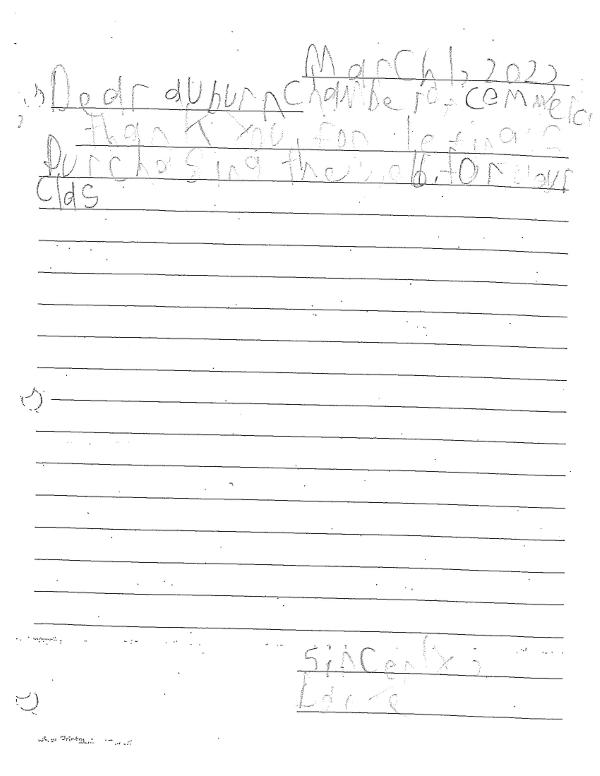 March 1, 2022
Dear auburn Chamber of cemmerc
thank you, for leting
Purchasing the for
Clds
Sincerly,